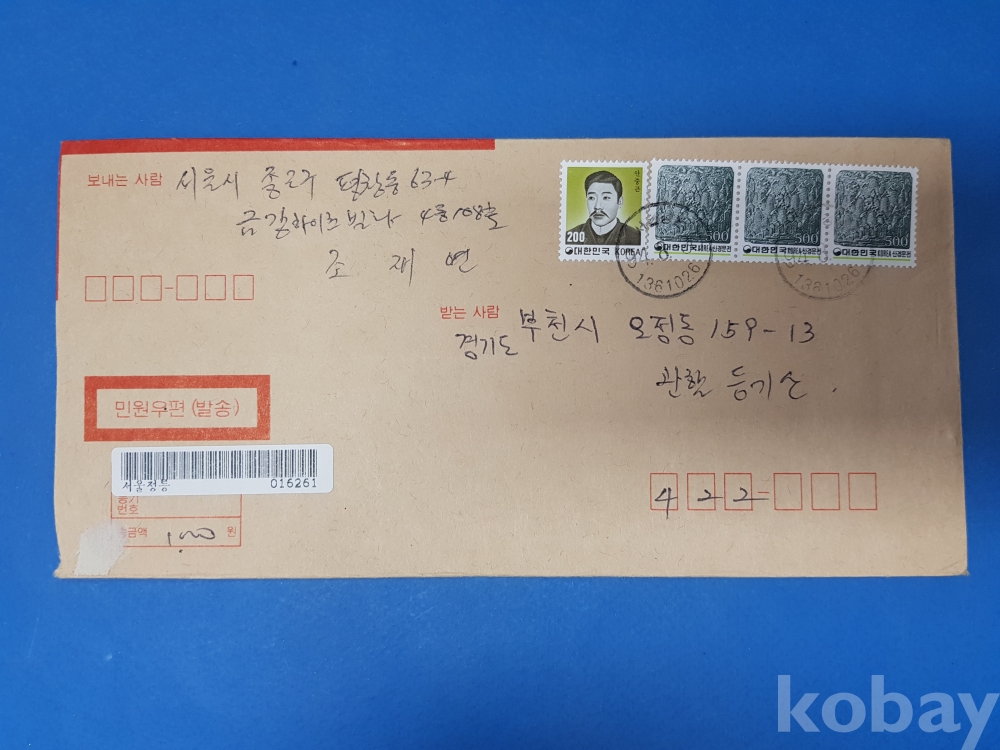 보내는 사람 서울시 종로구 평창동 63-4
금강하이츠빌라 4동 108호
조 재 연
안중근
200
대한민국 KOREA
500
대한민국
500
대한민국
500
대한민국
1381026
1381026
받는 사람
경기도 부천시 오정동 159-13
관할 등기소.
민원우편 (발송)
서울정릉 016261
등기
번호
금액 1,700 원
422-
kobay